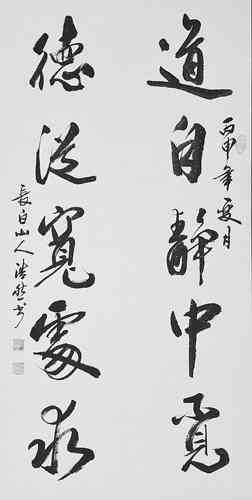 道自静中覓
德從寬處求
丙申年夏月
長白山人